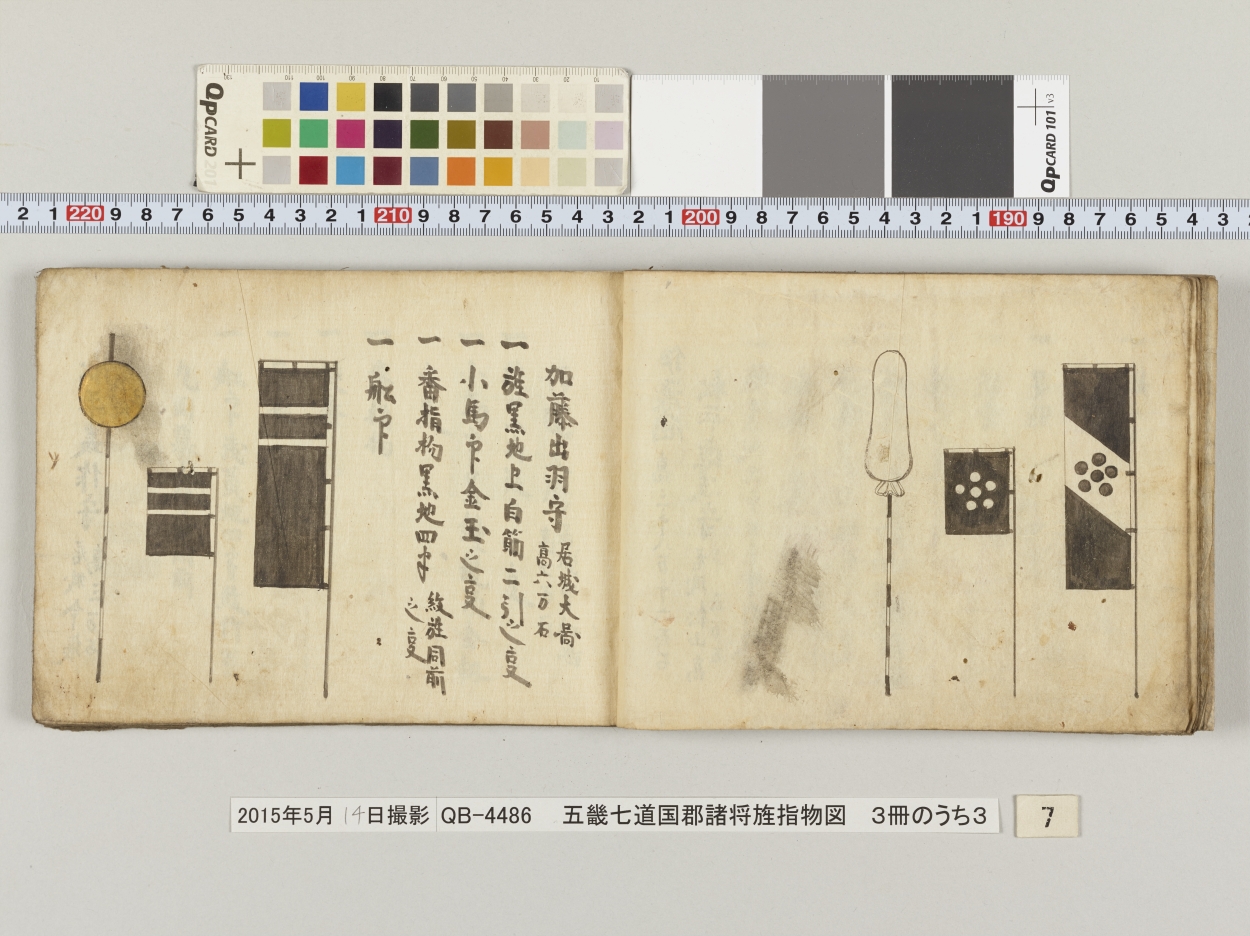 QPCARD 201
QPCARD 101 v3
2 1 220 9 8 7 6 5 4 3 2 1 210 9 8 7 6 5 4 3 2 1 200 9 8 7 6 5 4 3 2 1 190 9 8 7 6 5 4 3
加藤出羽守 居城大
高六万石
一 旌黒地上白筋二引之
一 小馬印金玉之
一 番指物黒地四半 紋旌同前
之
一 舩印
2015年5月14日撮影 QB-4486 五畿七道国郡諸将旌指物図 3冊のうち3
7